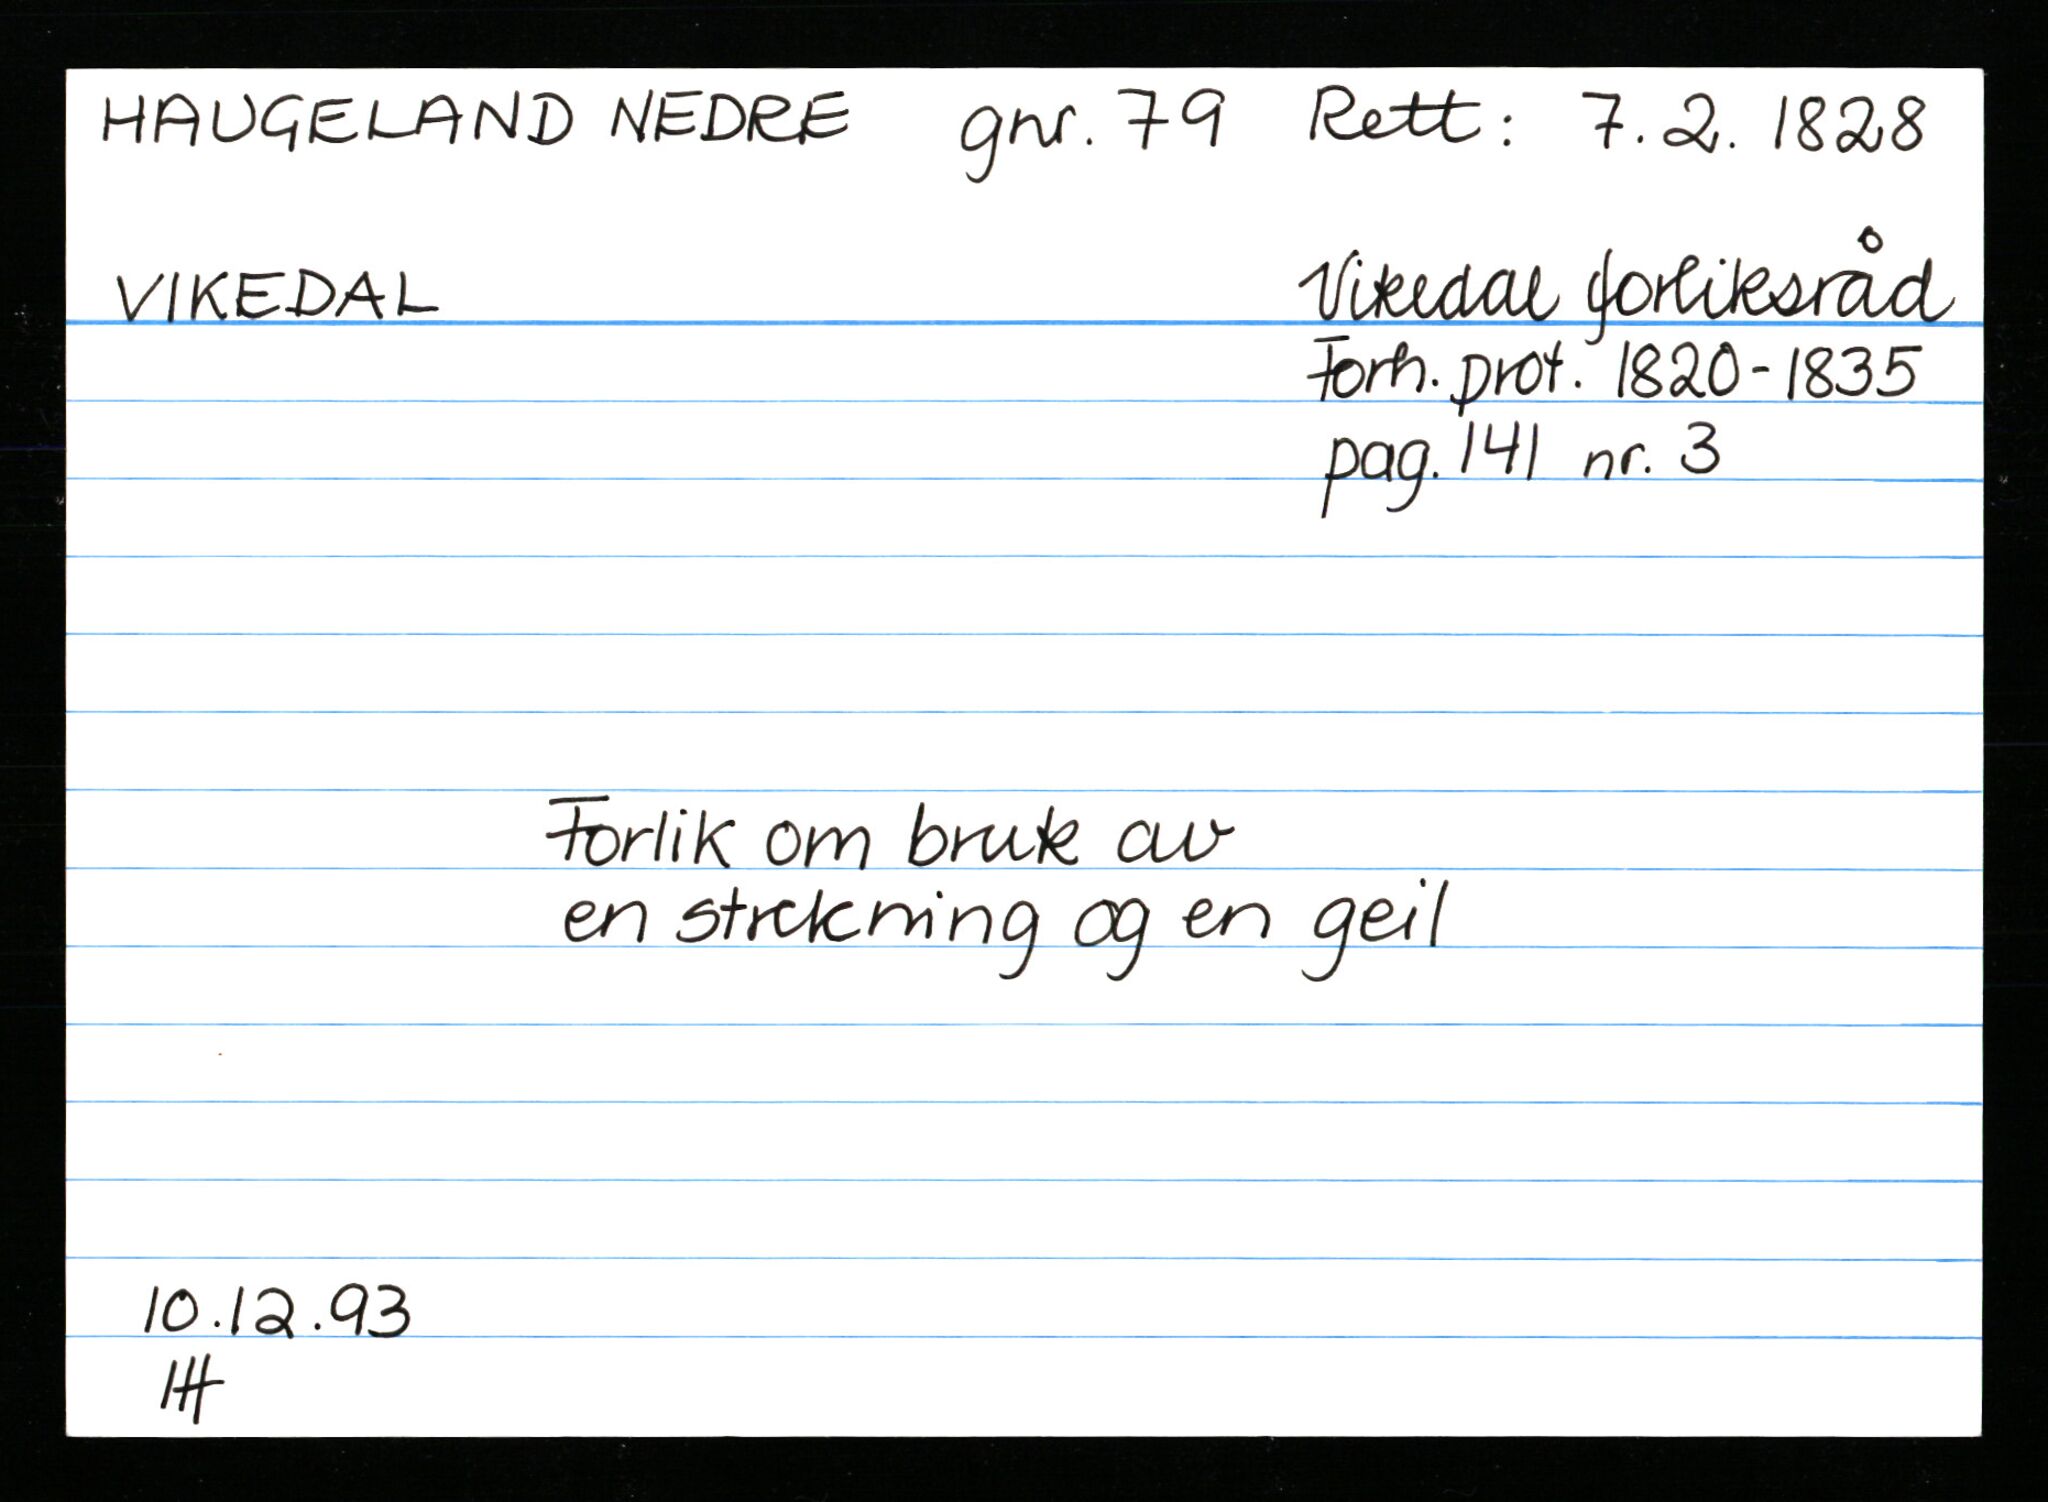 HAUGELAND NEDRE gnr. 79 Rett: 7.2.1828
VIKEDAL Vikedal forliksråd
Forh. prot. 1820-1835
pag. 141 nr. 3
Forlik om bruk av
en strekning og en geil
10.12.93